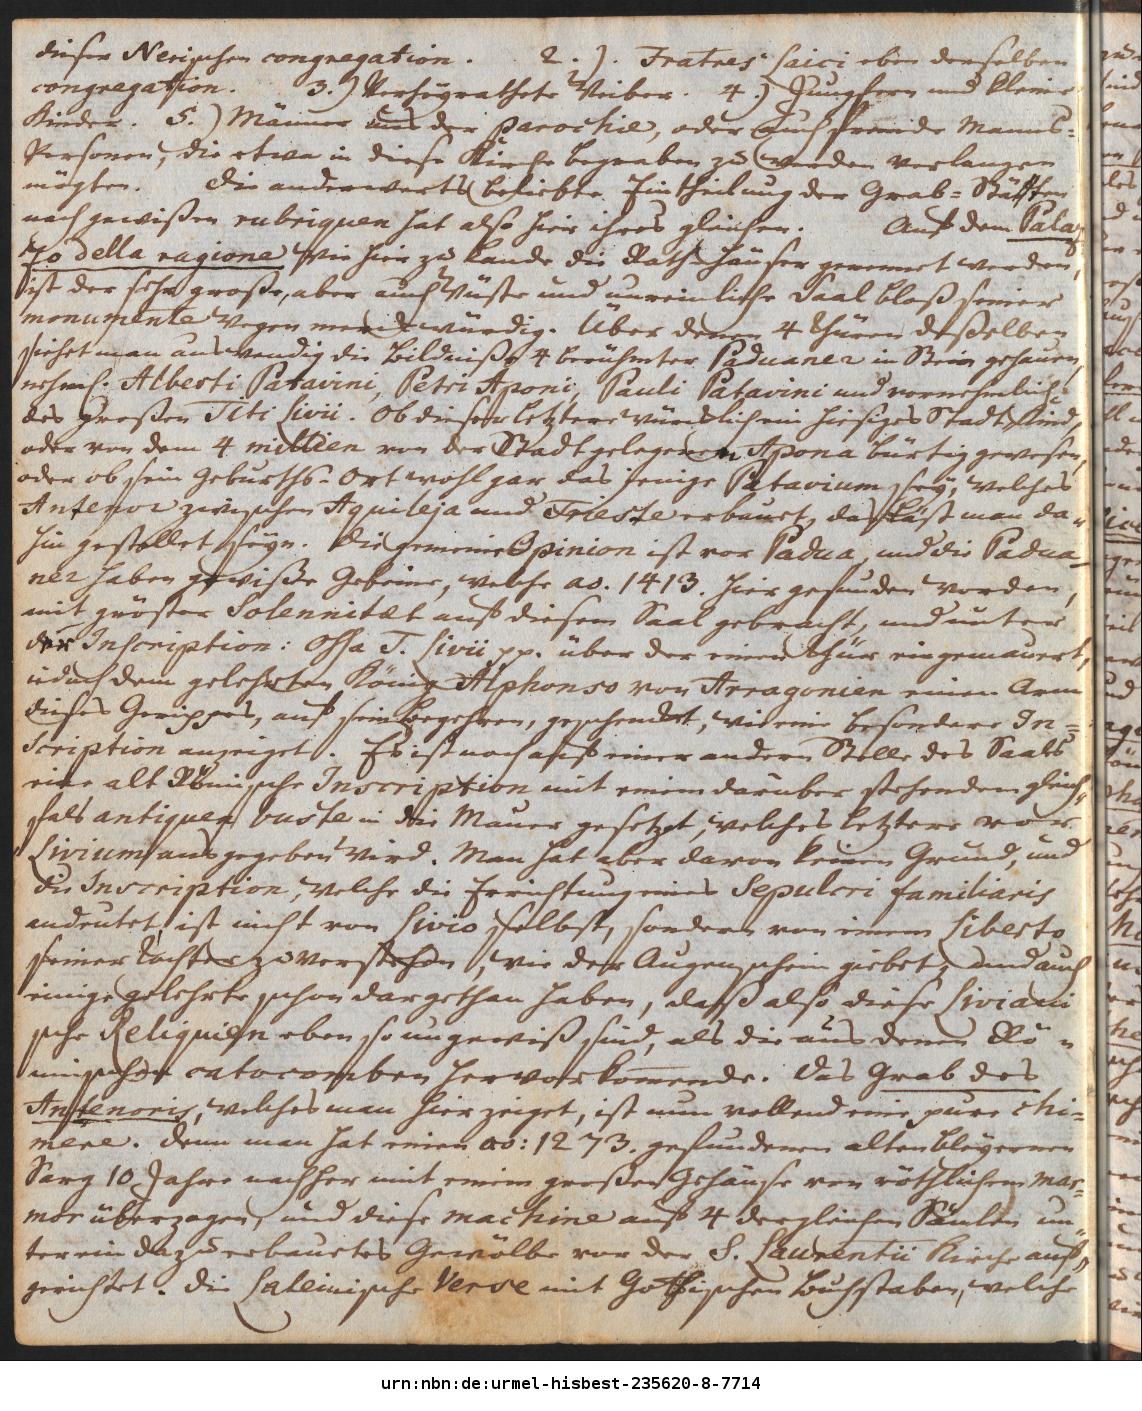 dieser Nerischen congregation. 2.). Fratres Laici eben derselben
congregation. 3.) Verheyrathete Weiber. 4.) Jungfern und kleine
Kinder. 5.) Männer aus der Parochie, oder auch fremde Manns-
Personen, die etwa in diese Kirche begraben zu werden verlangen
mögten. Die anderwerts beliebte Eintheilung der Grab-Stätten
nach gewißen rubriquen hat also hier ihres gleichen. Auf dem Palaz
zo della ragione wie hier zu Lande die Rath-Häuser genennet werden,
ist der sehr große, aber auch wüste und unreinliche Saal bloß seiner
monumente wegen merckwürdig. Über denen 4 Thüren deßelben
siehet man auswendig die Bildniße 4 berühmter Paduaner in Stein gehauen,
nehml. Alberti Patavini, Petri Aponi, Pauli Patavini und vornehmlich
des großen Titi Livii. Ob dieser letztere würcklich ein hiesiges Stadt Kind,
oder von dem 4 millien von der Stadt gelegenen Apona bürtig gewesen,
oder ob sein Geburths-Ort wohl gar das jenige Patavium sey, welches
Antenor zwischen Aquileja und Trieste erbauet, das läst man da-
hin gestellet seyn. Die gemeine Opinion ist vor Padua, und die Padua-
ner haben gewiße Gebeine, welche ao. 1413. hier gefunden worden,
mit gröster Solennitæt auf diesem Saal gebracht, und unter
der Inscription: Ossa T. Livii pp. über der einen Thür eingemauert,
iedoch dem gelehrten König Alphonso von Arragonien einen Arm
dieses Gerippes, auf sein Begehren, geschencket, wie eine besondere In-
scription anzeiget. Es ist noch auf einer andern Stelle des Saals
eine alt Römische Inscription mit einem darüber stehenden gleich-
fals antiquen buste in die Mauer gesetzt, welches letztere vor
Livium ausgegeben wird. Man hat aber davon keinen Grund, und
die Inscription, welche die Errichtung eines Sepulcri familiaris
andeutet, ist nicht von Livio selbst, sondern von einem Liberto
seiner Tochter zu verstehen, wie der Augenschein giebet, und auch
einige gelehrte schon dargethan haben, daß also diese Liviani
sche Reliquien eben so ungewiß sind, als die aus denen Rö-
mischen catocomben hervorkommende. Das Grab des
Antenoris, welches man hier zeiget, ist nun vollend eine pure chi-
mere. Denn man hat einen ao: 1273. gefundenen alten bleyernen
Sarg 10 Jahre nachher mit einem großen Gehäuse von röthlichem mar-
mor überzogen, und diese machine auf 4 dergleichen Säulen un-
ter ein dazu erbauetes Gewölbe vor der S. Laurentii Kirche auf-
gerichtet. Die Lateinische Verse mit Gothischen Buchstaben, welche
urn:nbn:de:urmel-hisbest-235620-8-7714